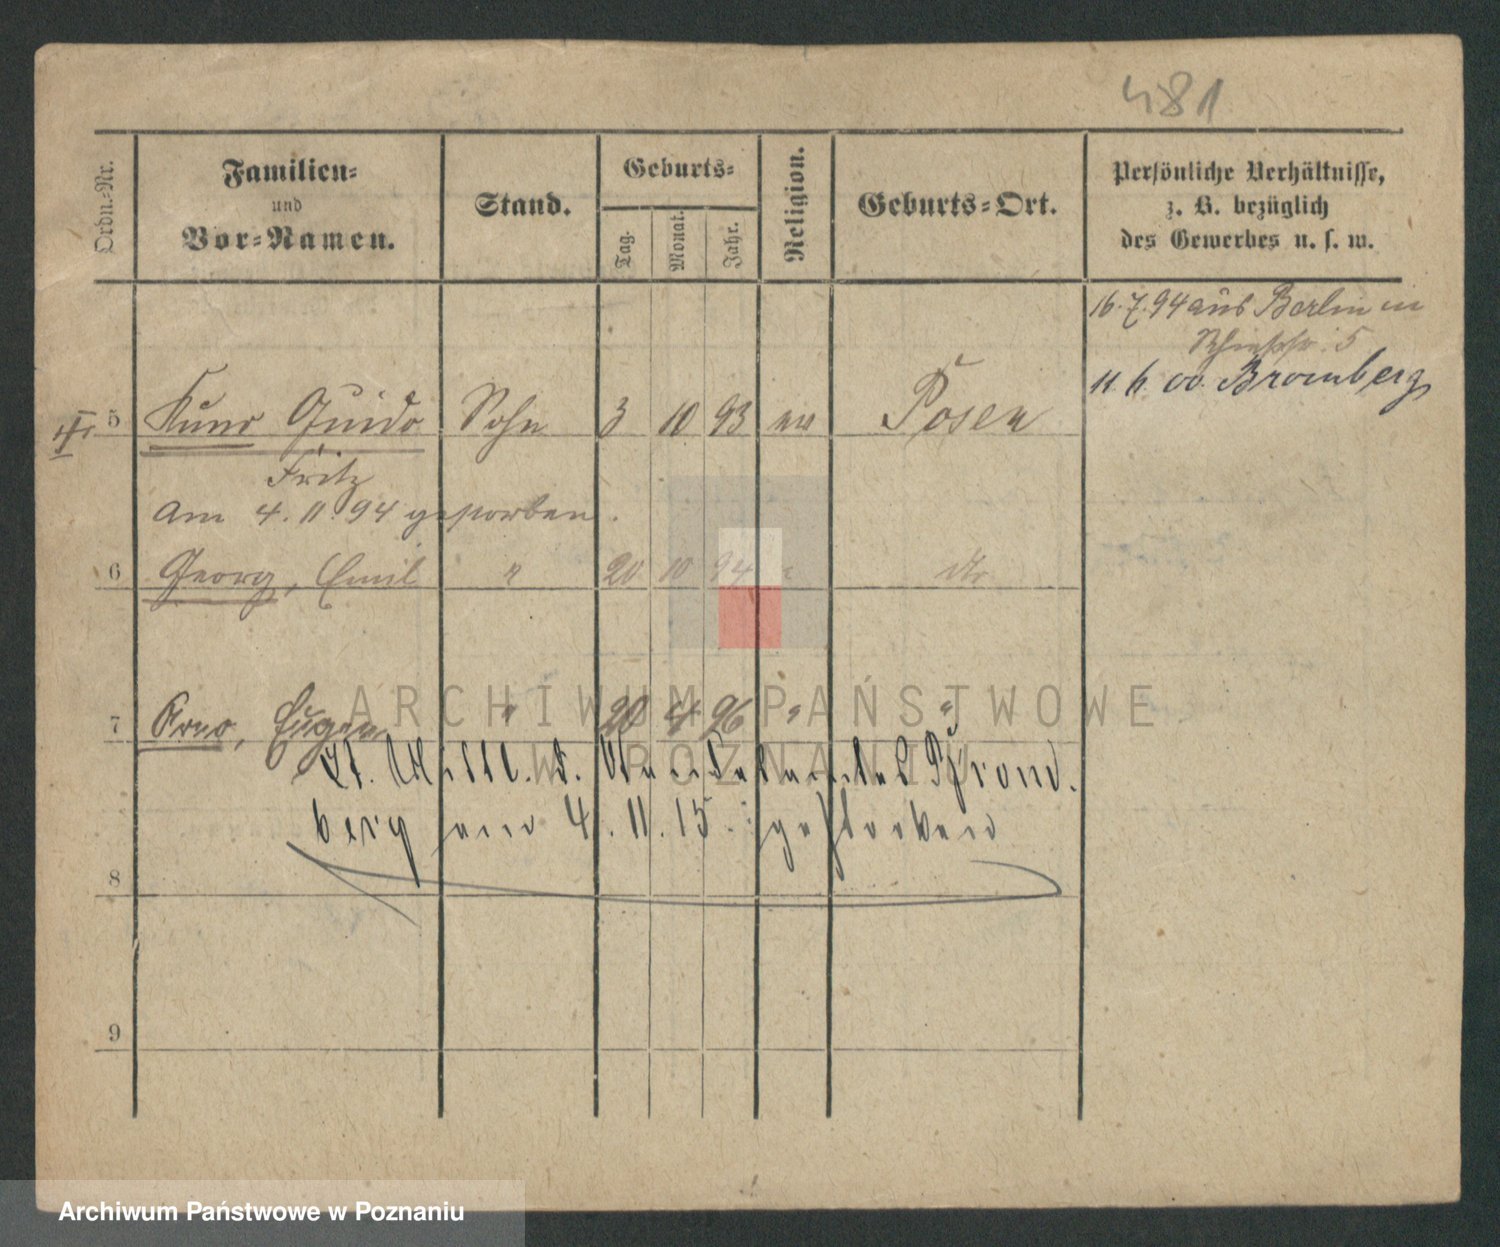 481
Ordn.-Nr.
Familien-
und
Vor-Namen.
Stand.
Geburts-
Tag.
Monat.
Jahr.
Religion.
Geburts-Ort.
Persönliche Verhältnisse,
z. B. bezüglich
des Gewerbes u. s. w.
16.7.94 aus Berlin in
5
11. 6. 00 Bromberg
5 Kuno Guido Sohn 3 10 93 ev Posen
Fritz
am 4. 11. 94 gestorben.
6 Georg, Emil " 20 10 94 " dto
7 Arno, Eugen " 20 4 96 " "
Lt. Mittl. d. Standesamtes
berg am 4. 11. 15. gestorben
8
9
ARCHIWUM PAŃSTWOWE
W POZNANIU
Archiwum Państwowe w Poznaniu